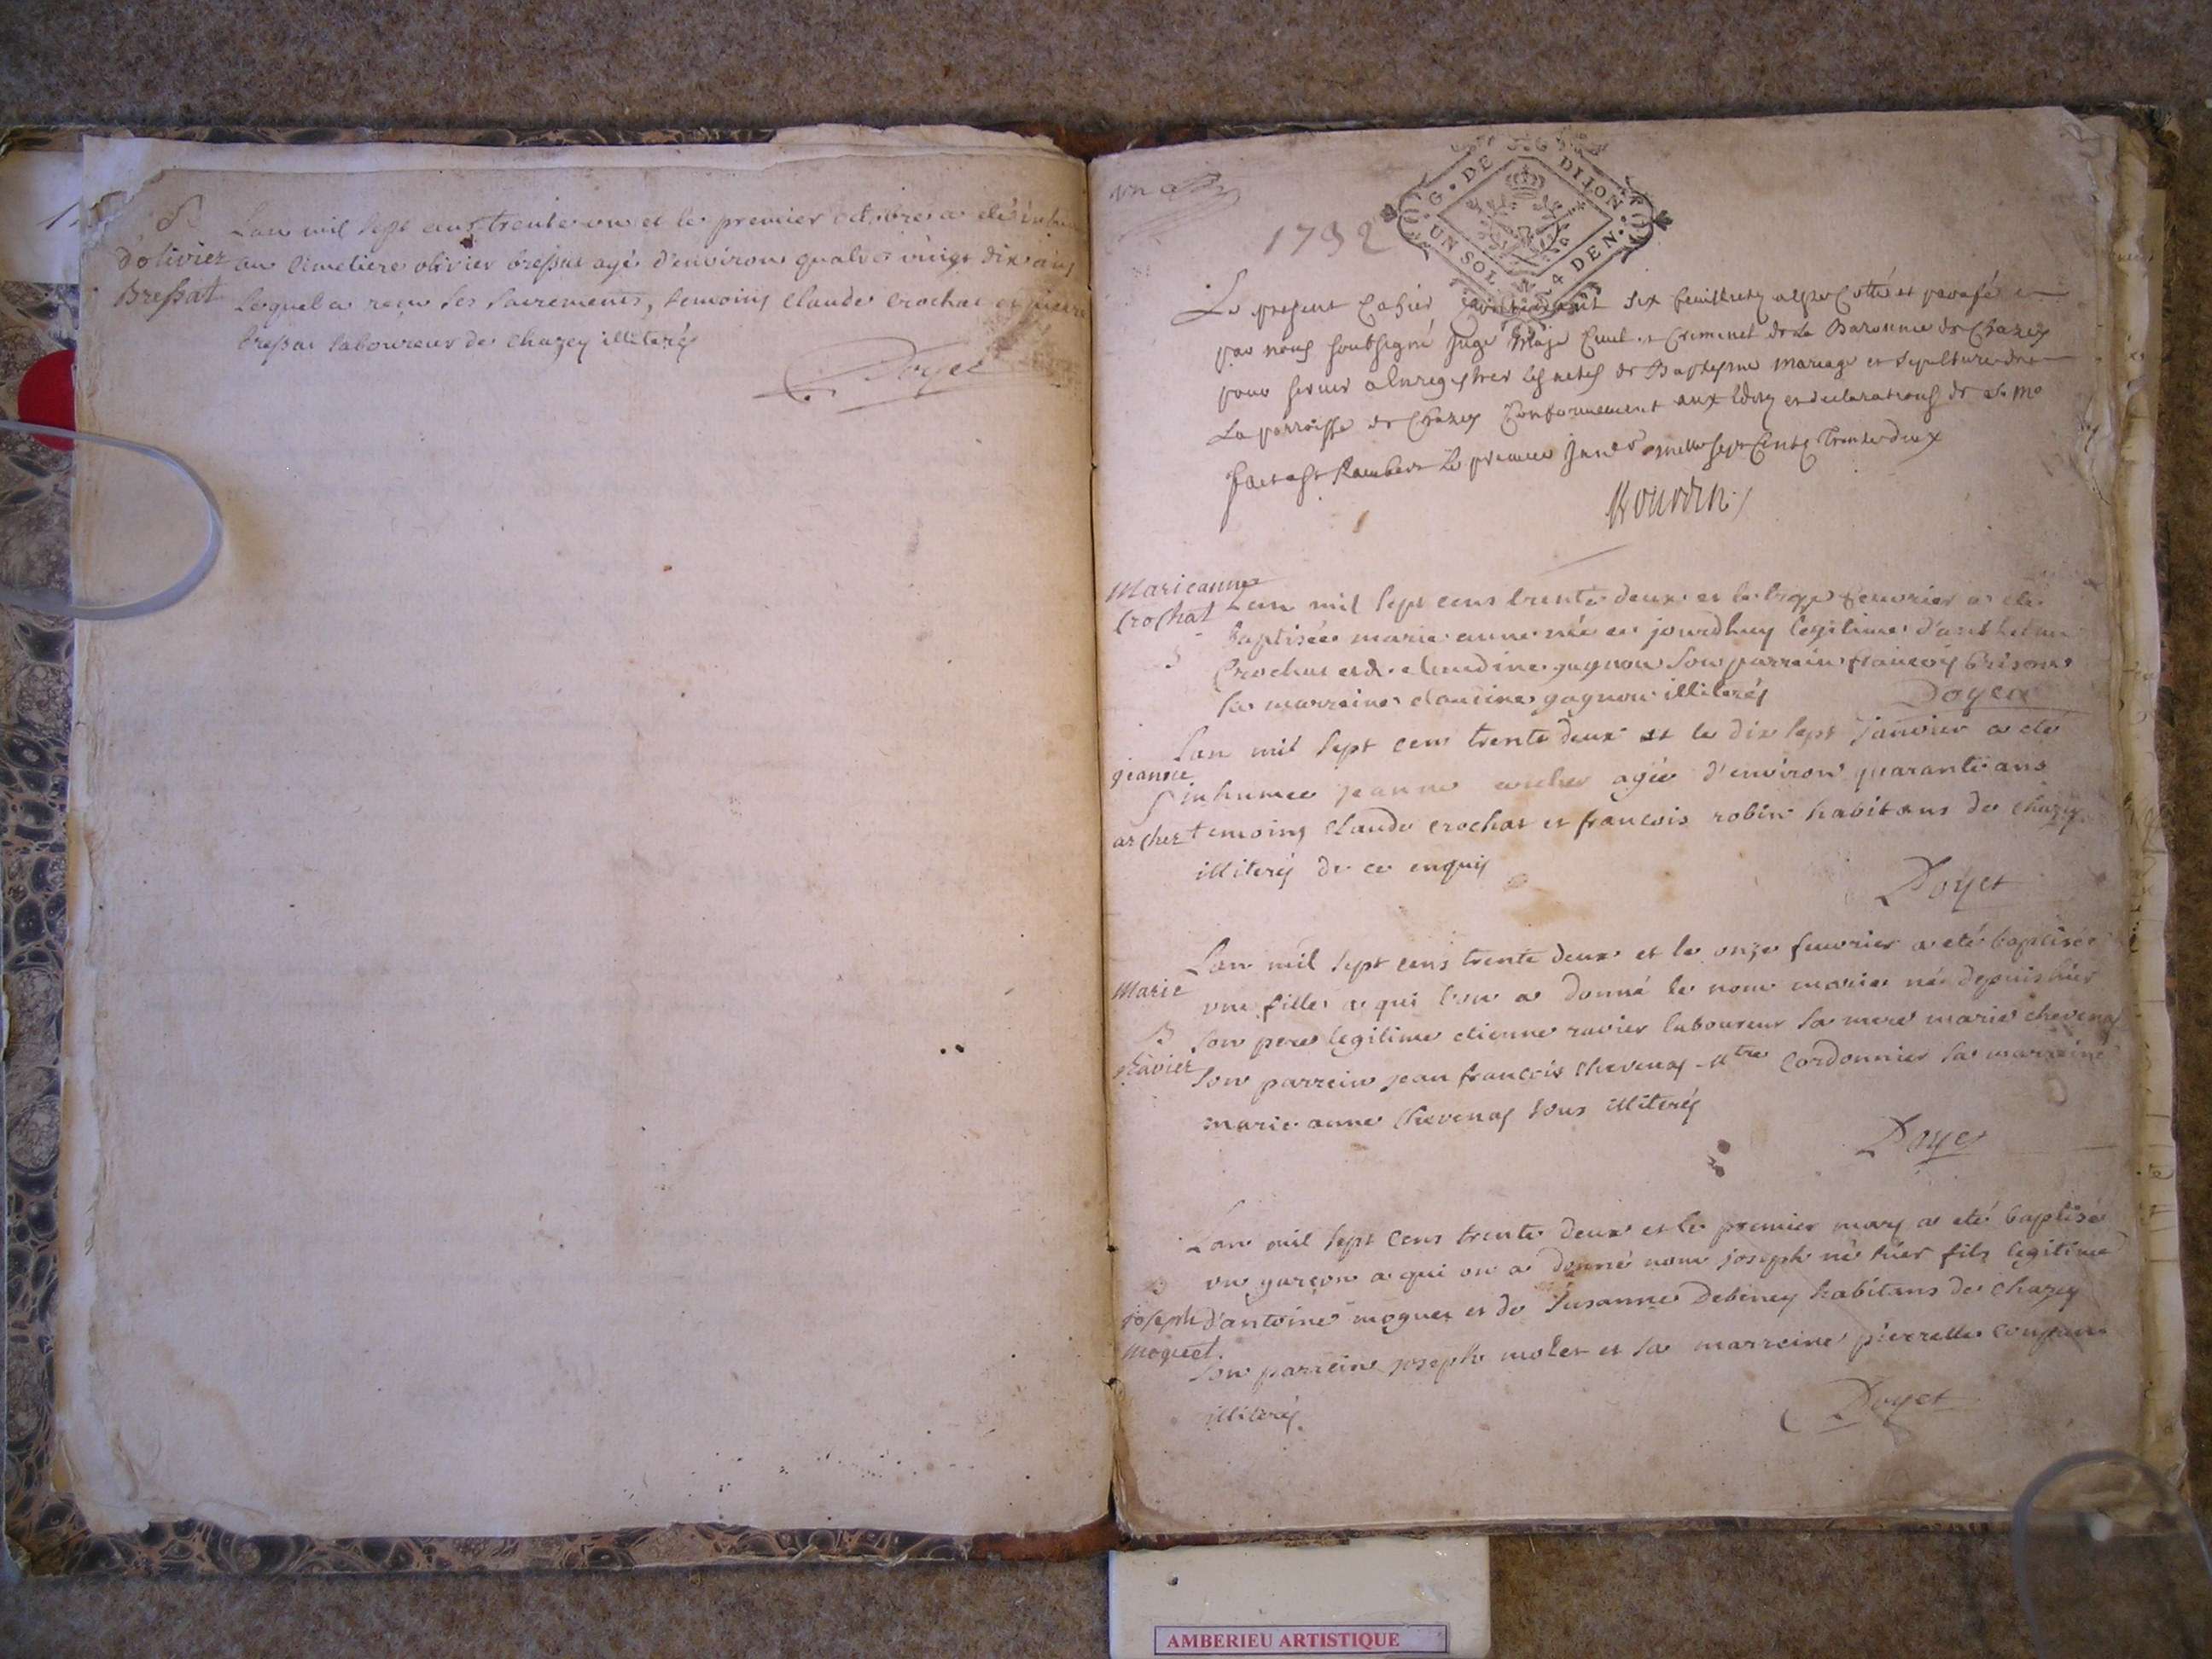 S
d'olivier
Bressat
Lan mil sept cens trente un et le premier octobre a eté inhumé
au cimetiere olivier bressat agé d'environ quatre vingt dix ans
lequel a reçu ses sacrements, temoins Claude Crochat et pierre
bressat laboureur de chazey illiterés
Doyet
1732
G. DE DIJON
UN SOL 4 DEN.
Le present Cahier Contenant six feuillets a esté Cotté et parafé
par nous soubsigné Juge Maje Civil et Criminel de La Baronnie de Chazey
pour servir a Enregistrer les actes de Baptesme Mariage et Sepulture de
La parroisse de Chazey Conformement aux Edits et declarations de sa Mté
fait a St Rambert Le premier Janvr mille sept Cents Trente deux
Marieanne
Crochat
Lan mil sept cens trente deux et le feuvrier a eté
baptisée marie anne née ce jourdhuy legitime d'anthelme
Crochat et de claudine gagnon son parrein françois
sa marreine claudine gagnon illiterés
Doyet
jeanne
S
archer
Lan mil sept cens trente deux et le dix sept janvier a eté
inhumée jeanne archer agée d'environ quarante ans
temoins Claude crochat et francois robin habitans de chazey
illiterés de ce enquis
Doyet
Marie
B
Ravier
Lan mil sept cens trente deux et le onze feuvrier a eté baptisée
une fille a qui l'on a donné le nom marie née depuis hier
son pere legitime etienne ravier laboureur sa mere marie chevenas
son parrein jean francois chevenas Mtre Cordonnier sa marreine
marie anne Chevenas tous illiterés
Doyet
B
joseph
moquet.
Lan mil sept cens trente deux et le premier mars a eté baptisé
un garçon a qui on a donné nom joseph né hier fils legitime
d'antoine moquet et de Susanne Debeney habitans de chazey
son parrein joseph molet et sa marreine pierrette
illiterés
Doyet
AMBERIEU ARTISTIQUE